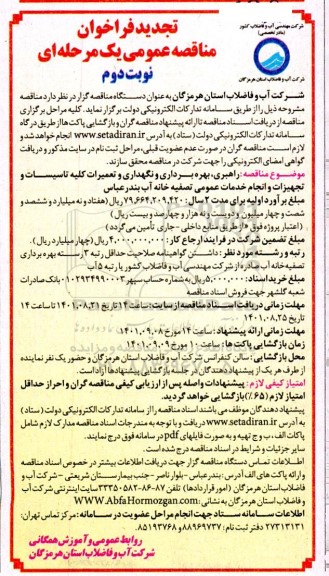 شرکت مهندسی آب و فاضلاب کشور
(مادر تخصصی)
شرکت آب و فاضلاب استان هرمزگان
تجدید فراخوان
مناقصه عمومی یک مرحله ای
نوبت دوم
شرکت آب و فاضلاب استان هرمزگان به عنوان دستگاه مناقصه گزار در نظر دارد مناقصه
مشروحه ذیل را از طریق سامانه تدارکات الکترونیکی دولت برگزار نماید. کلیه مراحل برگزاری
مناقصه از دریافت اسناد مناقصه تا ارائه پیشنهاد مناقصه گران و بازگشایی پاکت ها از طریق درگاه
سامانه تدارکات الکترونیکی دولت (ستاد) به آدرس www.setadiran.ir انجام خواهد شد و
لازم است مناقصه گران در صورت عدم عضویت قبلی، مراحل ثبت نام در سایت مذکور و دریافت
گواهی امضای الکترونیکی را جهت شرکت در مناقصه محقق سازند.
موضوع مناقصه: راهبری، بهره برداری و نگهداری و تعمیرات کلیه تاسیسات و
تجهیزات و انجام خدمات عمومی تصفیه خانه آب بندرعباس
مبلغ برآورد اولیه برای مدت ۲ سال: ۷۹,۶۶۴,۲۰۹,۴۲۰ ریال (هفتاد و نه میلیارد و ششصد و
شصت و چهار میلیون و دویست و نه هزار و چهارصد و بیست ریال)
(اعتبار پروژه فوق از طریق منابع داخلی - جاری تأمین می گردد)
مبلغ تضمین شرکت در فرایند ارجاع کار: ۴,۰۰۰,۰۰۰,۰۰۰ ریال (چهار میلیارد ریال).
رتبه و رشته مورد نظر: داشتن گواهینامه صلاحیت حداقل رتبه ۳ رسته بهره برداری
تصفیه خانه آب صادره از شرکت مهندسی آب و فاضلاب کشور یا رتبه ۵ آب
مبلغ خرید اسناد: ۵,۰۰۰,۰۰۰ ریال به شماره حساب سپهر ۰۱۰۲۹۳۴۹۹۰۰۰۳ بانک صادرات
شعبه گلشهر جهت فروش اسناد مناقصه
مهلت زمانی دریافت اسناد مناقصه از سایت: ساعت ۱۴ تاریخ ۱۴۰۱,۰۸,۲۱ تا ساعت ۱۴
تاریخ ۱۴۰۱,۰۸,۲۵
مهلت زمانی ارائه پیشنهاد: ساعت ۱۴ مورخ ۱۴۰۱,۰۹,۰۸
زمان بازگشایی پاکت ها: ساعت ۱۰ مورخ ۱۴۰۱,۰۹,۰۹
محل بازگشایی: سالن کنفرانس شرکت آب و فاضلاب استان هرمزگان و حضور یک نفر نماینده
از طرف هر یک از پیشنهاد دهندگان در جلسه بازگشایی پیشنهادها آزاد است.
امتیاز کیفی لازم: پیشنهادات واصله پس از ارزیابی کیفی مناقصه گران و احراز حداقل
امتیاز لازم (۶۵٪) بازگشایی خواهد گردید.
پیشنهاد دهندگان موظف می باشند اسناد مناقصه را از سامانه تدارکات الکترونیکی دولت (ستاد)
به آدرس www.setadiran.ir دریافت و با توجه به مندرجات اسناد مناقصه مدارک لازم شامل
پاکات الف، ب و ج تهیه و به صورت فایلهای pdf در سامانه فوق درج نمایند.
سایر جزئیات و شرایط در اسناد مناقصه درج شده است.
اطلاعات تماس دستگاه مناقصه گزار جهت دریافت اطلاعات بیشتر در خصوص اسناد مناقصه
و ارائه پاکت های الف آدرس: بندرعباس - بلوار ناصر - جنب بیمارستان شریعتی - شرکت آب و
فاضلاب استان هرمزگان (امور قراردادها) تلفن ۸۷-۸۶-۳۳۳۵۰۵۸۲ سایت اینترنتی شرکت آب
و فاضلاب استان هرمزگان به نشانی: WWW.AbfaHormozgan.com
اطلاعات سامانه ستاد جهت انجام مراحل عضویت در سامانه: مرکز تماس تهران:
۲۷۳۱۳۱۳۱ دفتر ثبت نام: ۸۸۹۶۹۷۳۷ و ۸۵۱۹۳۷۶۸.
روابط عمومی و آموزش همگانی
شرکت آب و فاضلاب استان هرمزگان